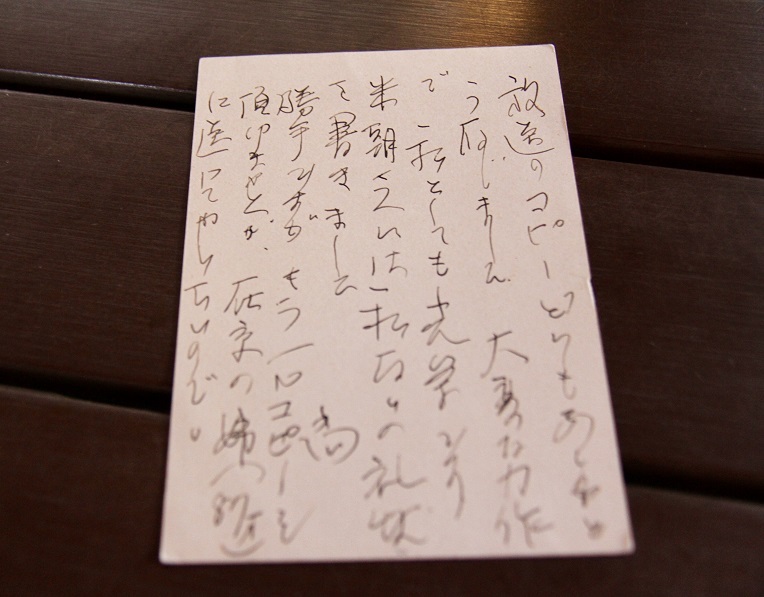 放送のコピーどうもありがと
うございました 大変な力作
で 私としても光栄
米朝さんには 私からの礼状
を書きました
勝手ですが もう一つコピーを
頂けませんか、在京の姉へ
に送ってやりたいので。